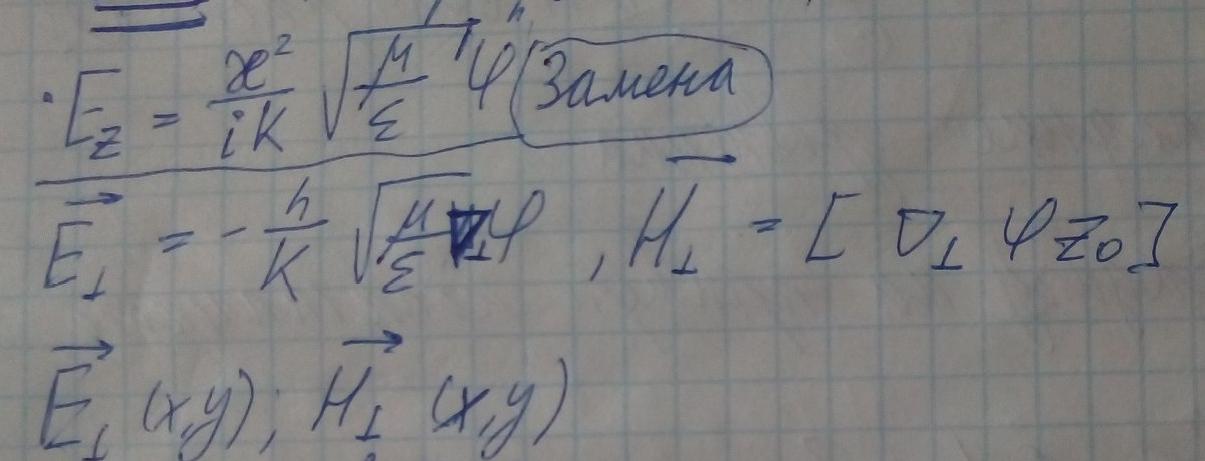 · E_z = æ²/iK √(μ/ε) φ (Замена)
E⃗_⊥ = - h/K √(μ/ε) ∇_⊥ φ , H⃗_⊥ = [ ∇_⊥ φ z₀ ]
E⃗_⊥ (x,y); H⃗_⊥ (x,y)